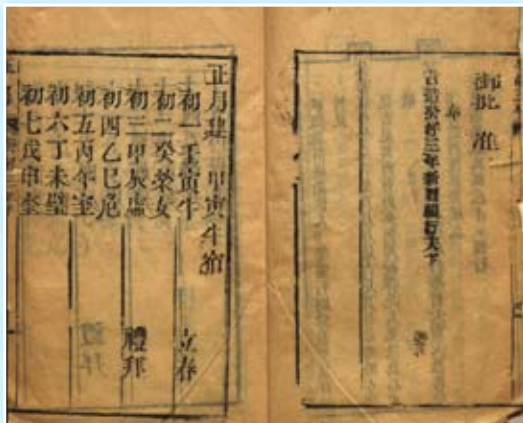 御批 准
旨造癸好三年新曆頒行天下
正月建 甲寅牛宿
初一壬寅牛 立春
初二癸榮女
初三甲辰虛 禮拜
初四乙巳危
初五丙午室
初六丁未壁
初七戊申奎